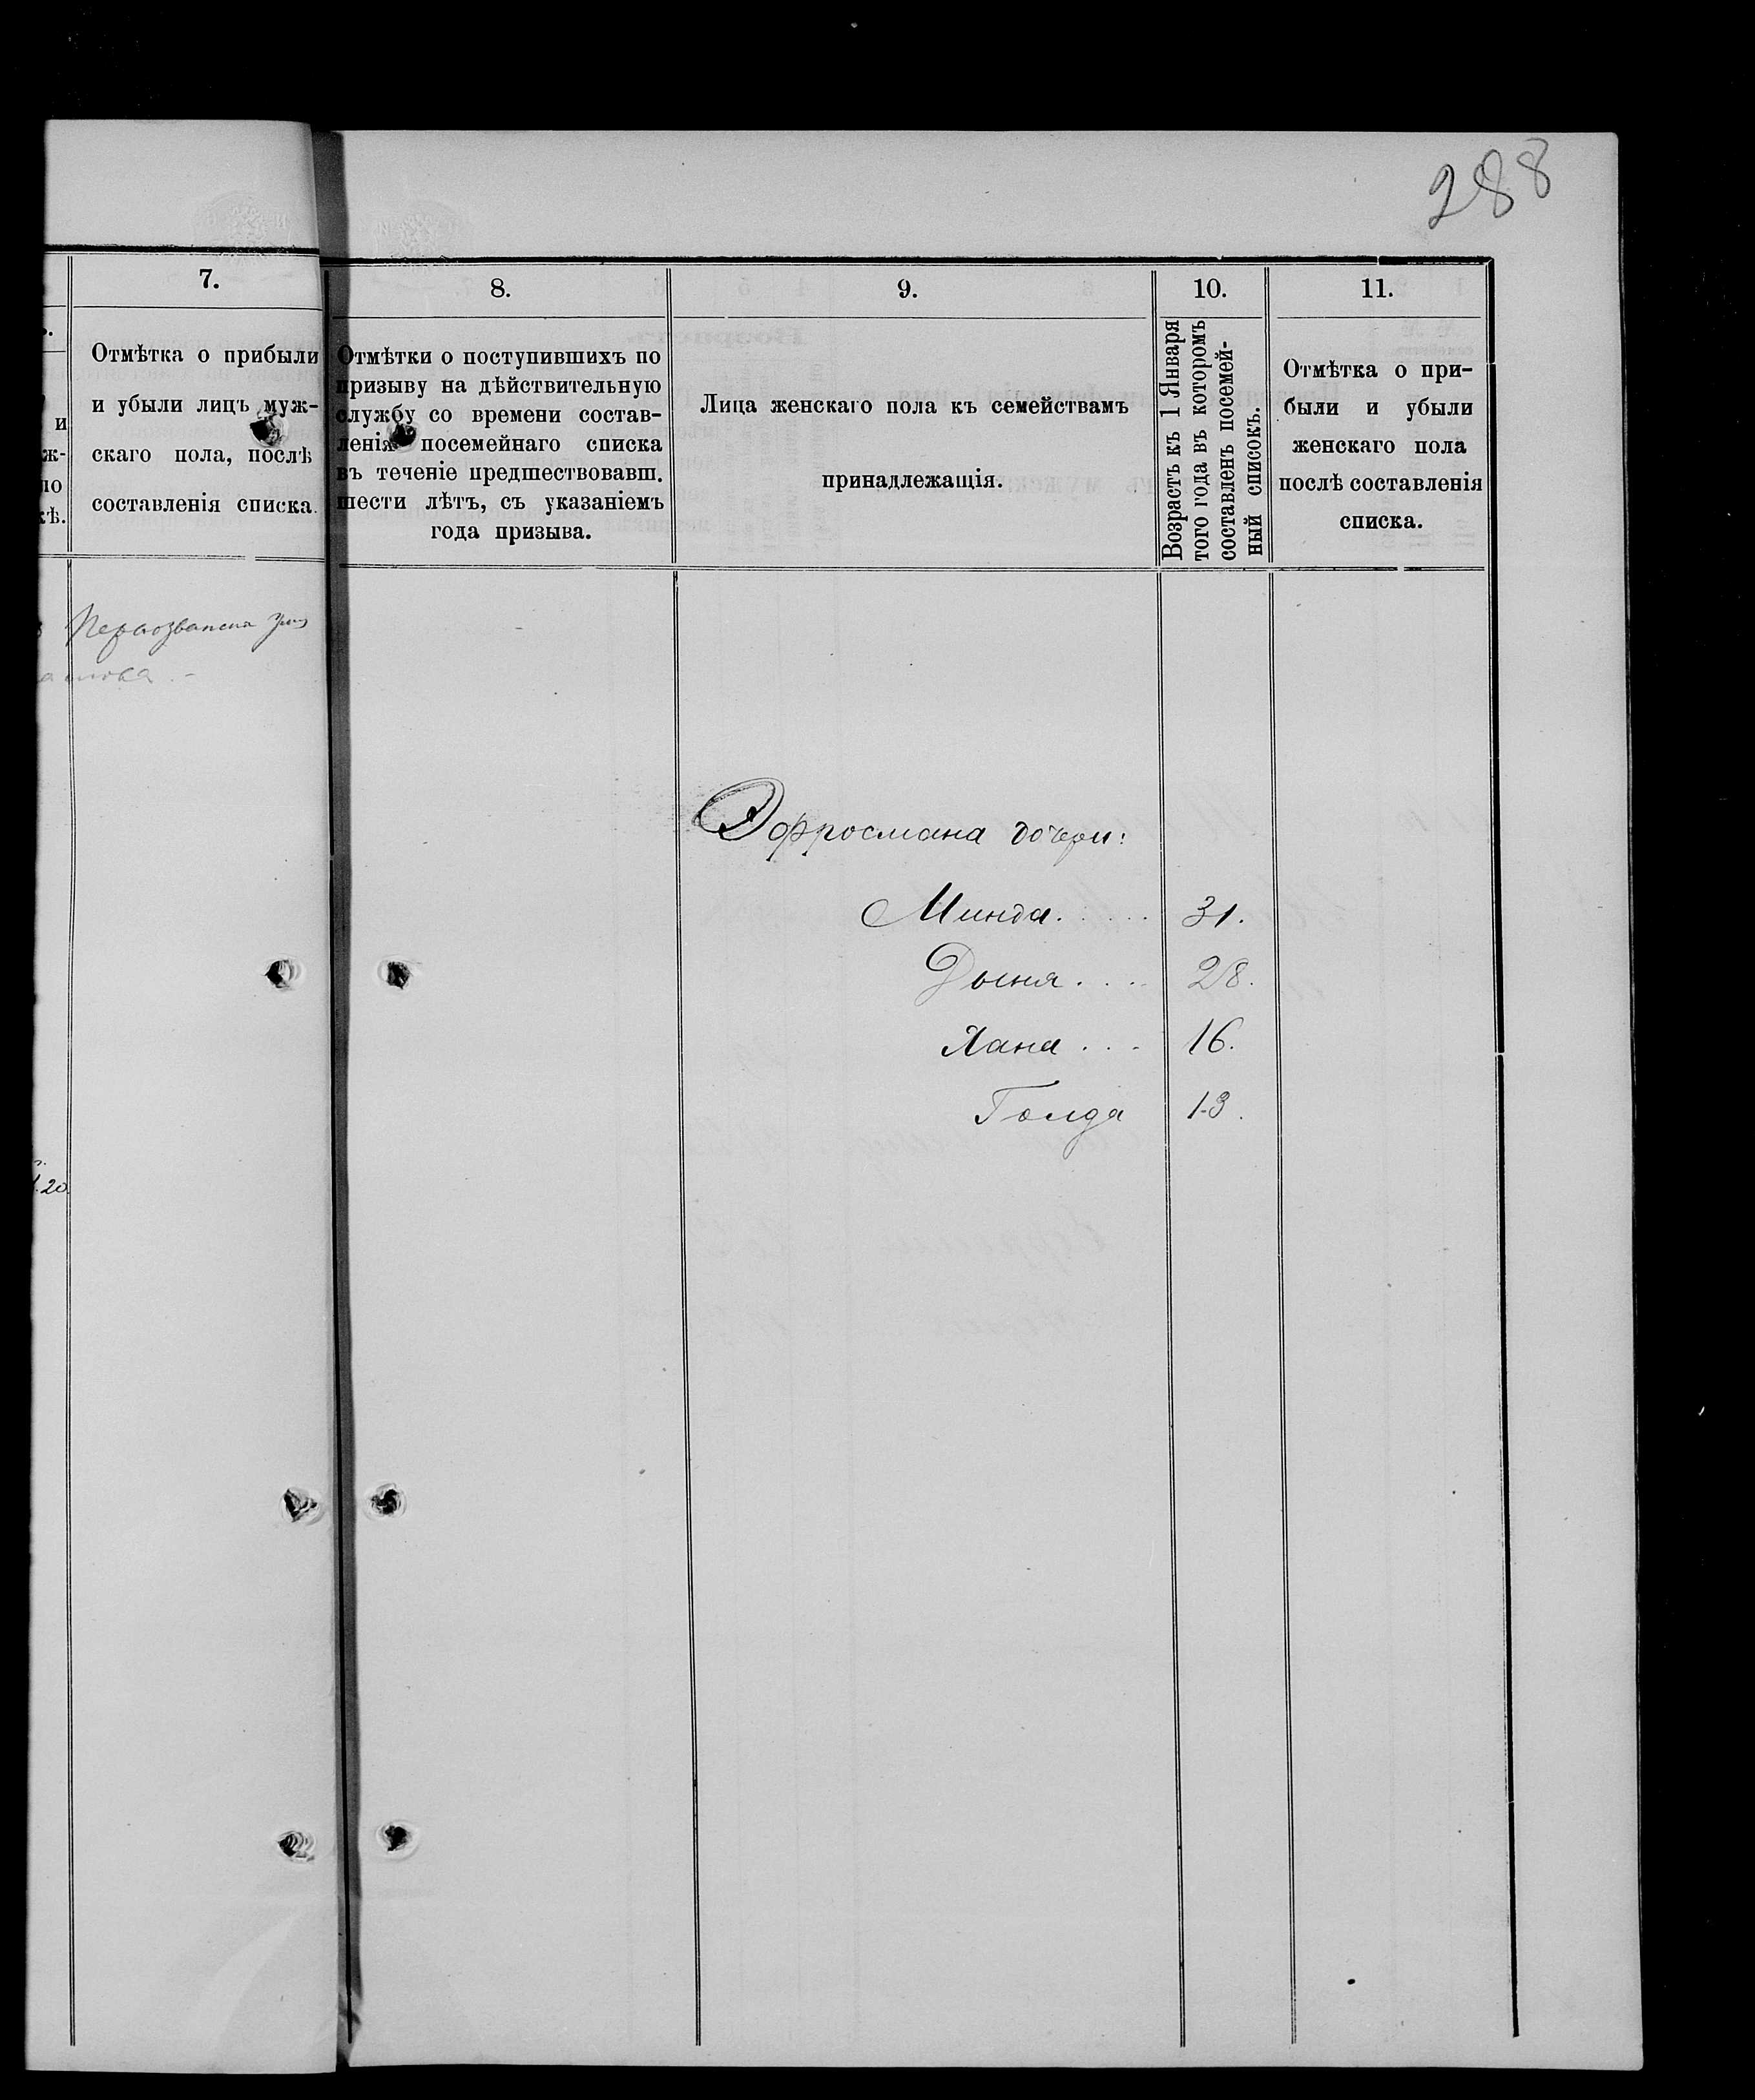 288
7.
Отмѣтка о прибыли
и убыли лицъ муж-
скаго пола, послѣ
составленія списка.
8.
Отмѣтки о поступившихъ по
призыву на дѣйствительную
службу со времени состав-
ленія посемейнаго списка
въ теченіе предшествовавш.
шести лѣтъ, съ указаніемъ
года призыва.
9.
Лица женскаго пола къ семействамъ
принадлежащія.
10.
Возрастъ къ 1 Января
того года въ которомъ
составленъ посемей-
ный списокъ.
11.
Отмѣтка о при-
были и убыли
женскаго пола
послѣ составленія
списка.
Эфросмана дочери:
Минда..... 31.
Дыня.... 28.
Хана... 16.
Голда 13.
20